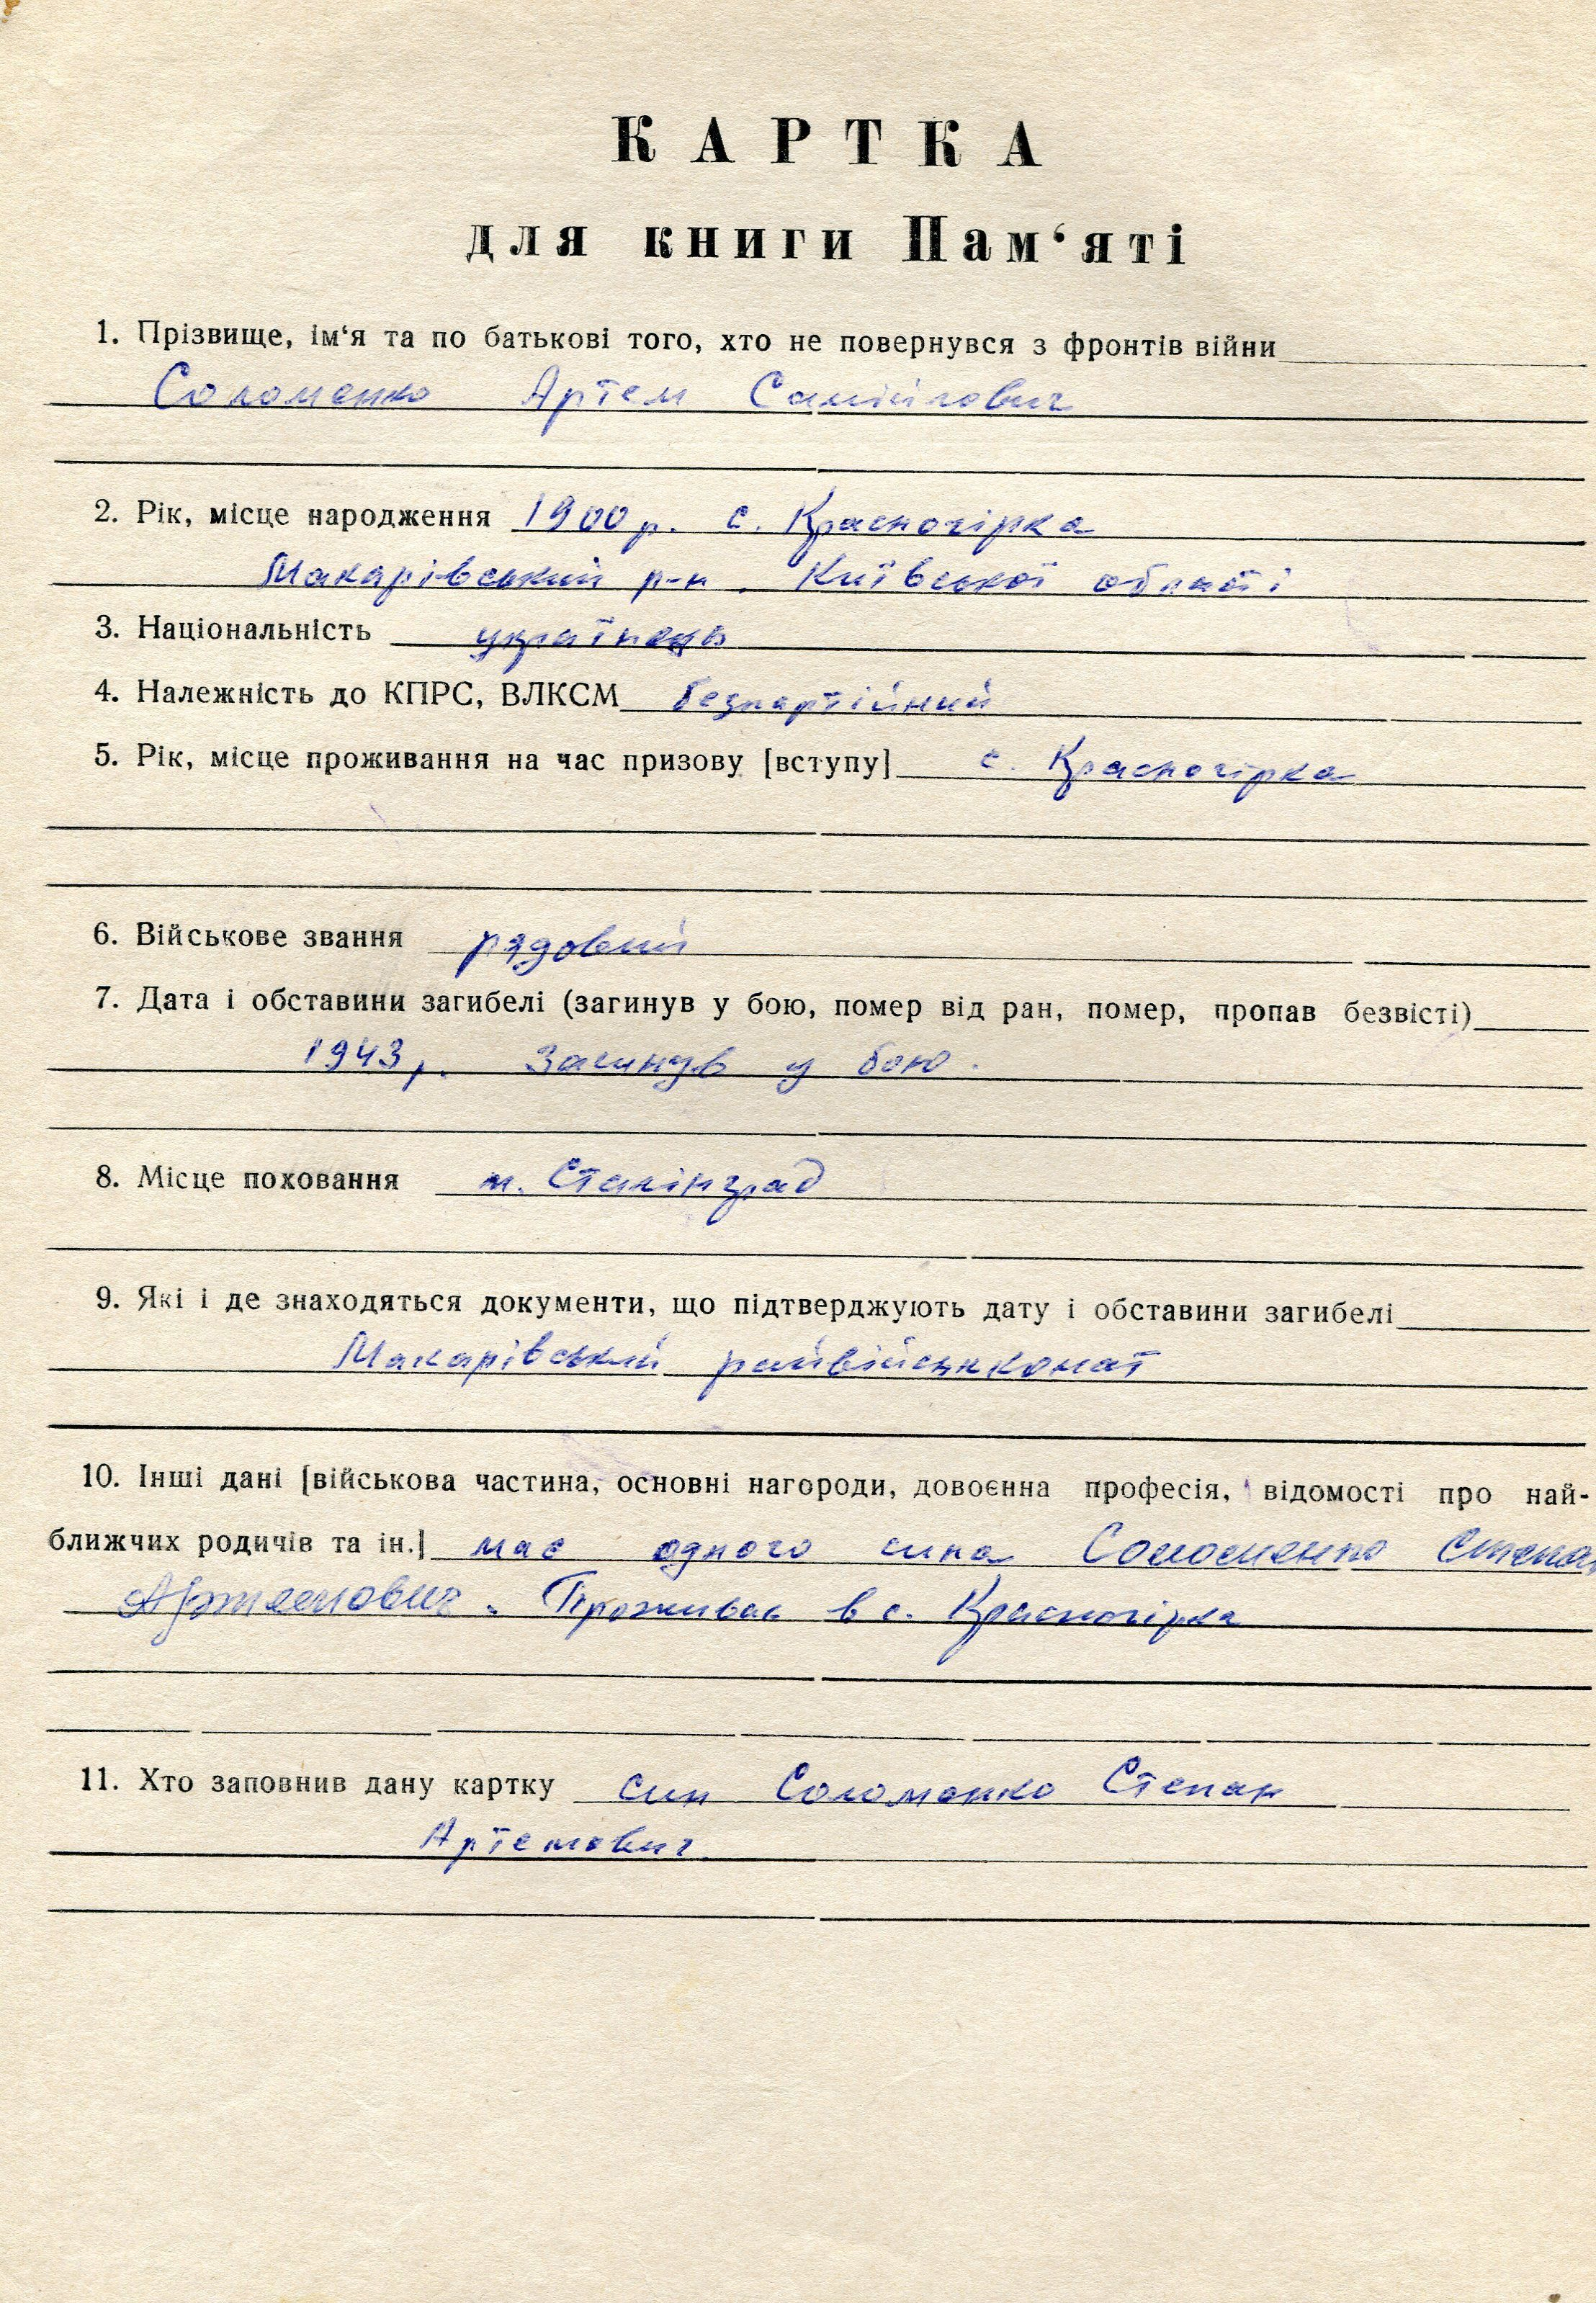 КАРТКА
для книги Пам‘яті
1. Прізвище, ім‘я та по батькові того, хто не повернувся з фронтів війни
Соломенко Артем Самійлович
2. Рік, місце народження 1900 р. с. Красногірка
Макарівський р-н. Київської області
3. Національність українець
4. Належність до КПРС, ВЛКСМ безпартійний
5. Рік, місце проживання на час призову [вступу] с. Красногірка
6. Військове звання рядовий
7. Дата і обставини загибелі (загинув у бою, помер від ран, помер, пропав безвісті)
1943 р. Загинув у бою.
8. Місце поховання м. Сталінград
9. Які і де знаходяться документи, що підтверджують дату і обставини загибелі
Макарівський райвійськкомат
10. Інші дані [військова частина, основні нагороди, довоєнна професія, відомості про най-
ближчих родичів та ін.] має одного сина Соломенко Степан
Артемович. Проживає в с. Красногірка
11. Хто заповнив дану картку син Соломенко Степан
Артемович